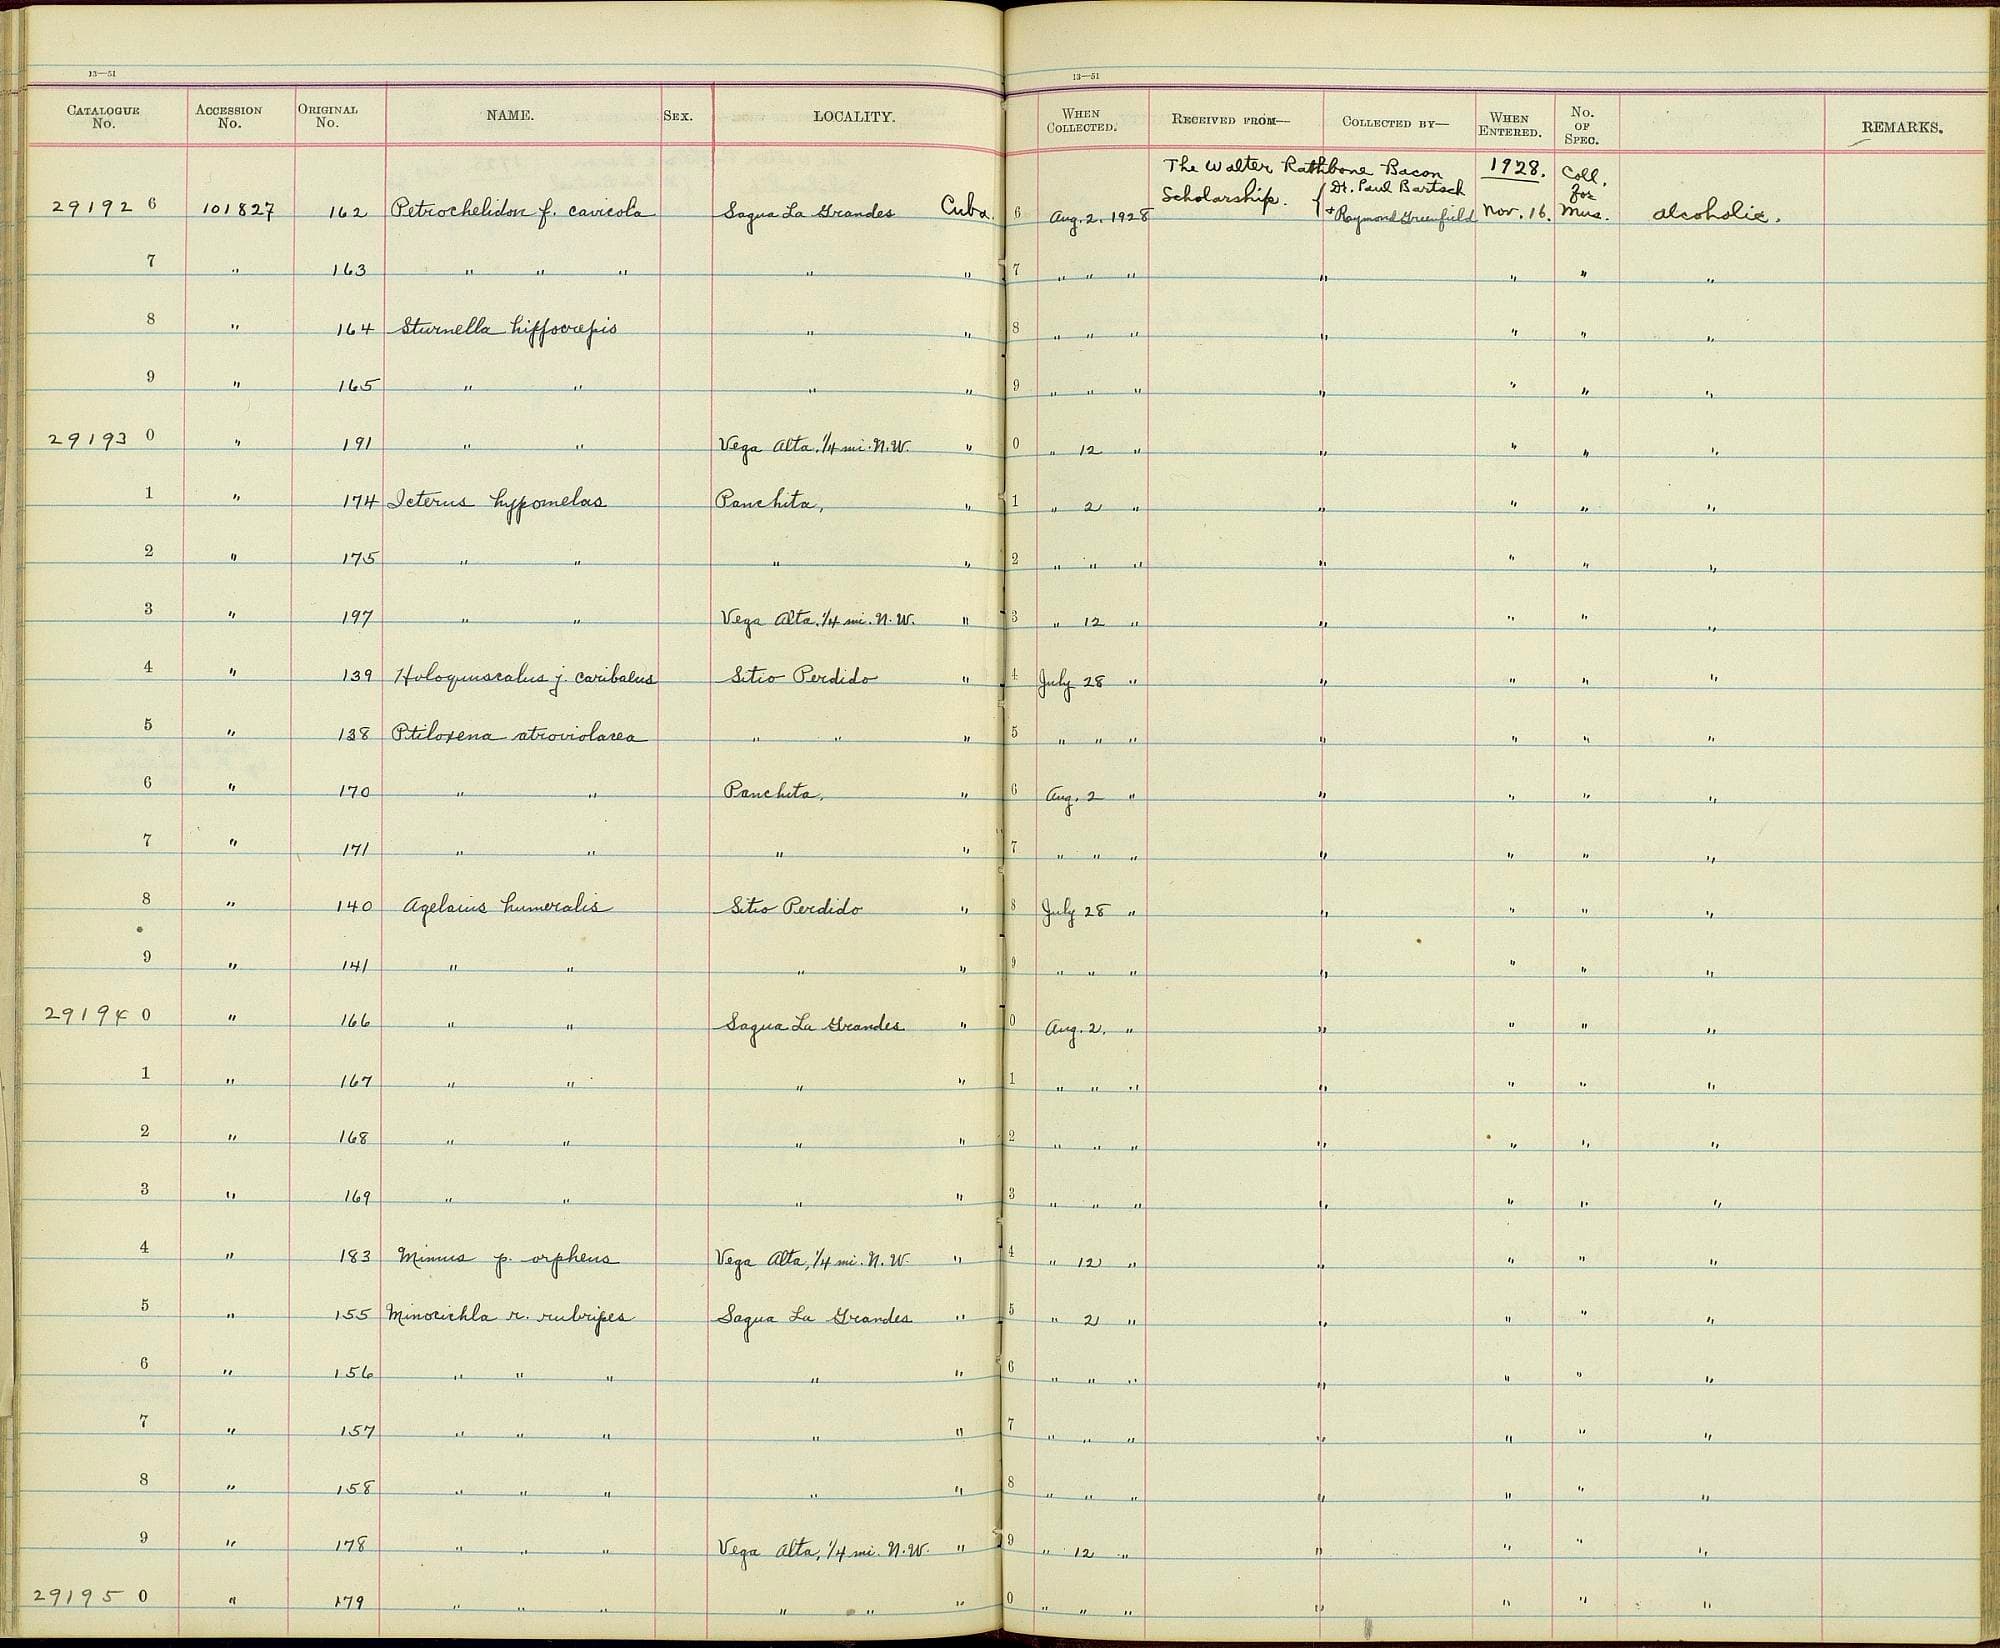 13—51 13—51
CATALOGUE No. ACCESSION No. ORIGINAL No. NAME. SEX. LOCALITY. WHEN COLLECTED. RECEIVED FROM— COLLECTED BY— WHEN ENTERED. No. OF SPEC. REMARKS.
The Walter Rathbone Bacon 1928. Coll.
Scholarship. { Dr. Paul Bartsch for
29192 6 101827 162 Petrochelidon f. cavicola Sagua La Grandes Cuba. 6 Aug. 2. 1928 + Raymond Greenfield Nov. 16. Mus. alcoholic.
7 " 163 " " " " " 7 " " " " " " "
8 " 164 Sturnella hippocrepis " " 8 " " " " " " "
9 " 165 " " " " 9 " " " " " " "
29193 0 " 191 " " Vega Alta, 1/4 mi. N.W. " 0 " 12 " " " " "
1 " 174 Icterus hypomelas Panchita, " 1 " 2 " " " " "
2 " 175 " " " " 2 " " " " " " "
3 " 197 " " Vega Alta, 1/4 mi. N.W. " 3 " 12 " " " " "
4 " 139 Holoquiscalus j. caribaeus Sitio Perdido " 4 July 28 " " " " "
5 " 138 Ptiloxena atroviolacea " " " 5 " " " " " " "
6 " 170 " " Panchita, " 6 Aug. 2 " " " " "
7 " 171 " " " " 7 " " " " " " "
8 " 140 Agelaius humeralis Sitio Perdido " 8 July 28 " " " " "
9 " 141 " " " " 9 " " " " " " "
29194 0 " 166 " " Sagua La Grandes " 0 Aug. 2. " " " " "
1 " 167 " " " " 1 " " " " " " "
2 " 168 " " " " 2 " " " " " " "
3 " 169 " " " " 3 " " " " " " "
4 " 183 Mimus p. orpheus Vega Alta, 1/4 mi. N.W. " 4 " 12 " " " " "
5 " 155 Mimocichla r. rubripes Sagua La Grandes " 5 " 2 " " " " "
6 " 156 " " " " " 6 " " " " " " "
7 " 157 " " " " " 7 " " " " " " "
8 " 158 " " " " " 8 " " " " " " "
9 " 178 " " " Vega Alta, 1/4 mi. N.W. " 9 " 12 " " " " "
29195 0 " 179 " " " " " " 0 " " " " " " "